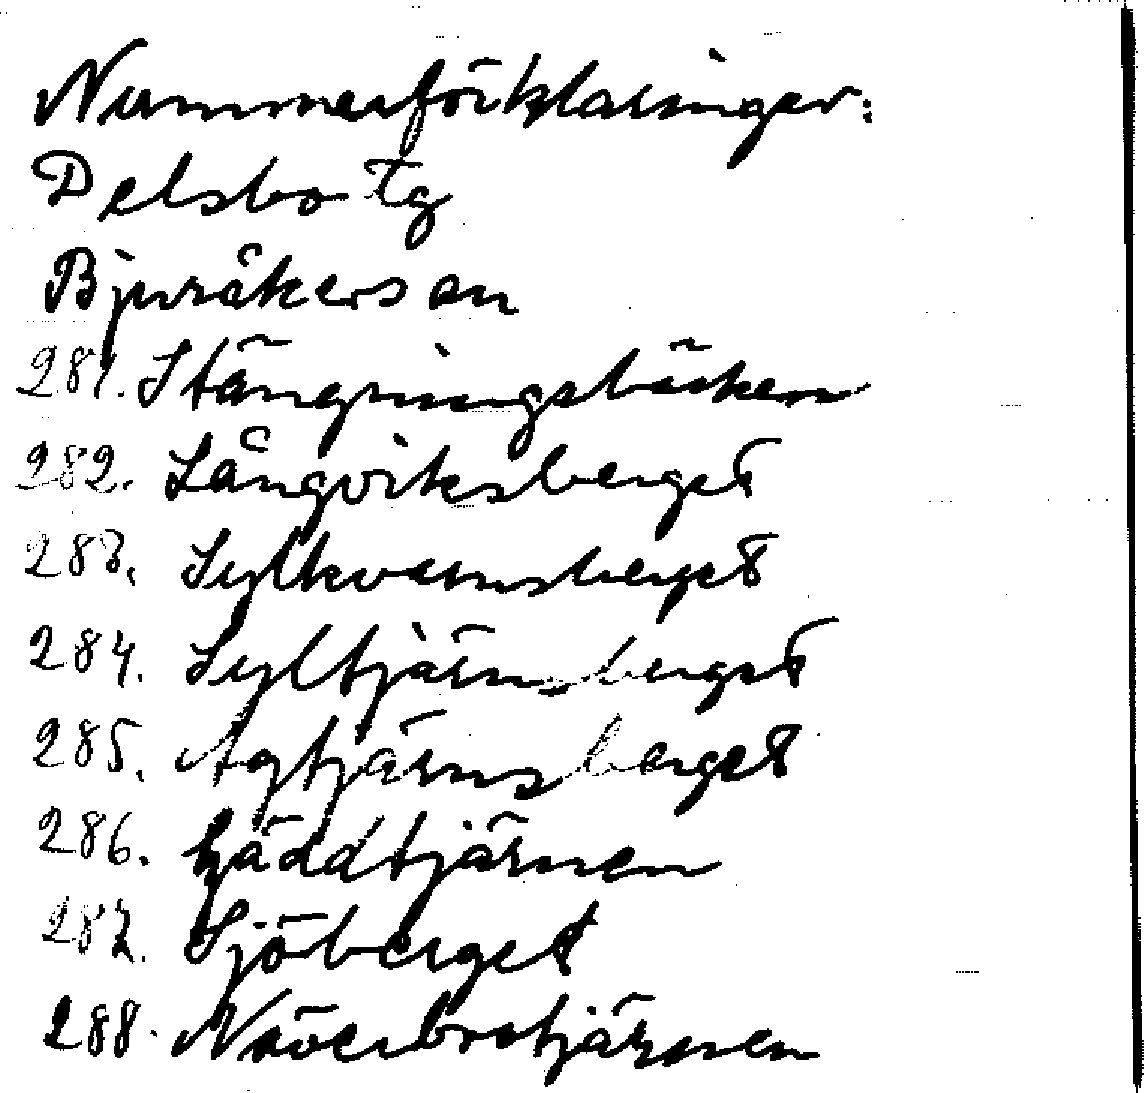 Nummerförklaringar:
Delsbo tg
Bjuråkers sn
281. Stängningsbäcken
282. Långviksberget
283. Sylkvarnsberget
284. Syltjärnsberget
285. Agtjärnsberget
286. Gäddtjärnen
287. Sjöberget
288. Näverbrotjärnen